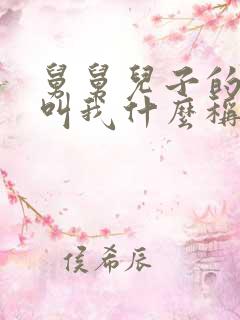 舅舅兒子的
叫我什麼稱
侯希辰